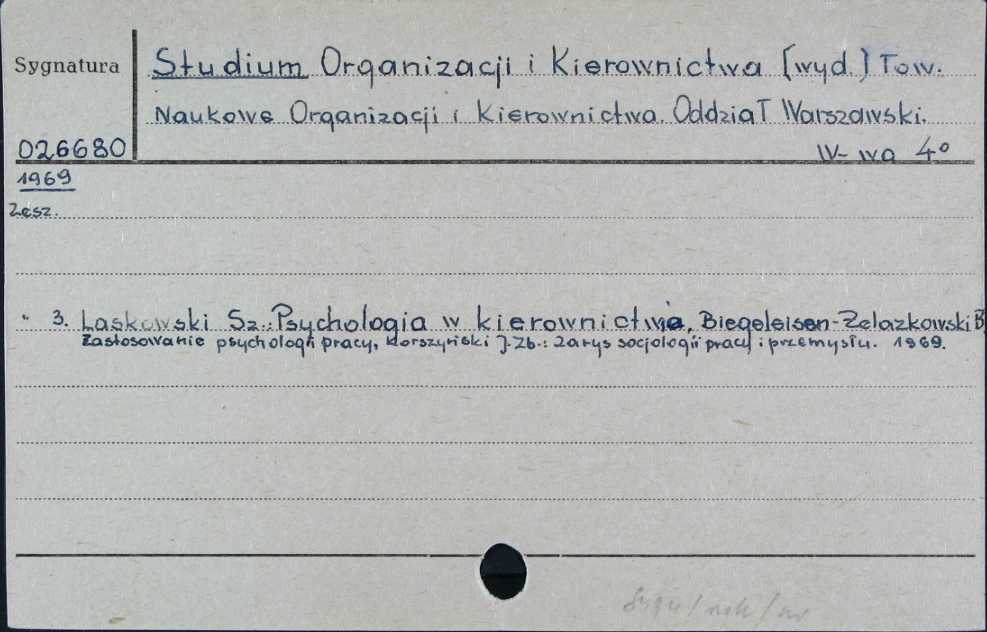 Sygnatura
Studium Organizacji i Kierownictwa [wyd.] Tow.
Naukowe Organizacji i Kierownictwa. Oddział Warszawski.
026680
W-wa 4°
1969
Zesz.
" 3. Laskowski Sz.: Psychologia w kierownictwie, Biegeleisen-Żelazkowski B
Zastosowanie psychologii pracy, Korszyński J. Zb.: Zarys socjologii pracy i przemysłu. 1969.